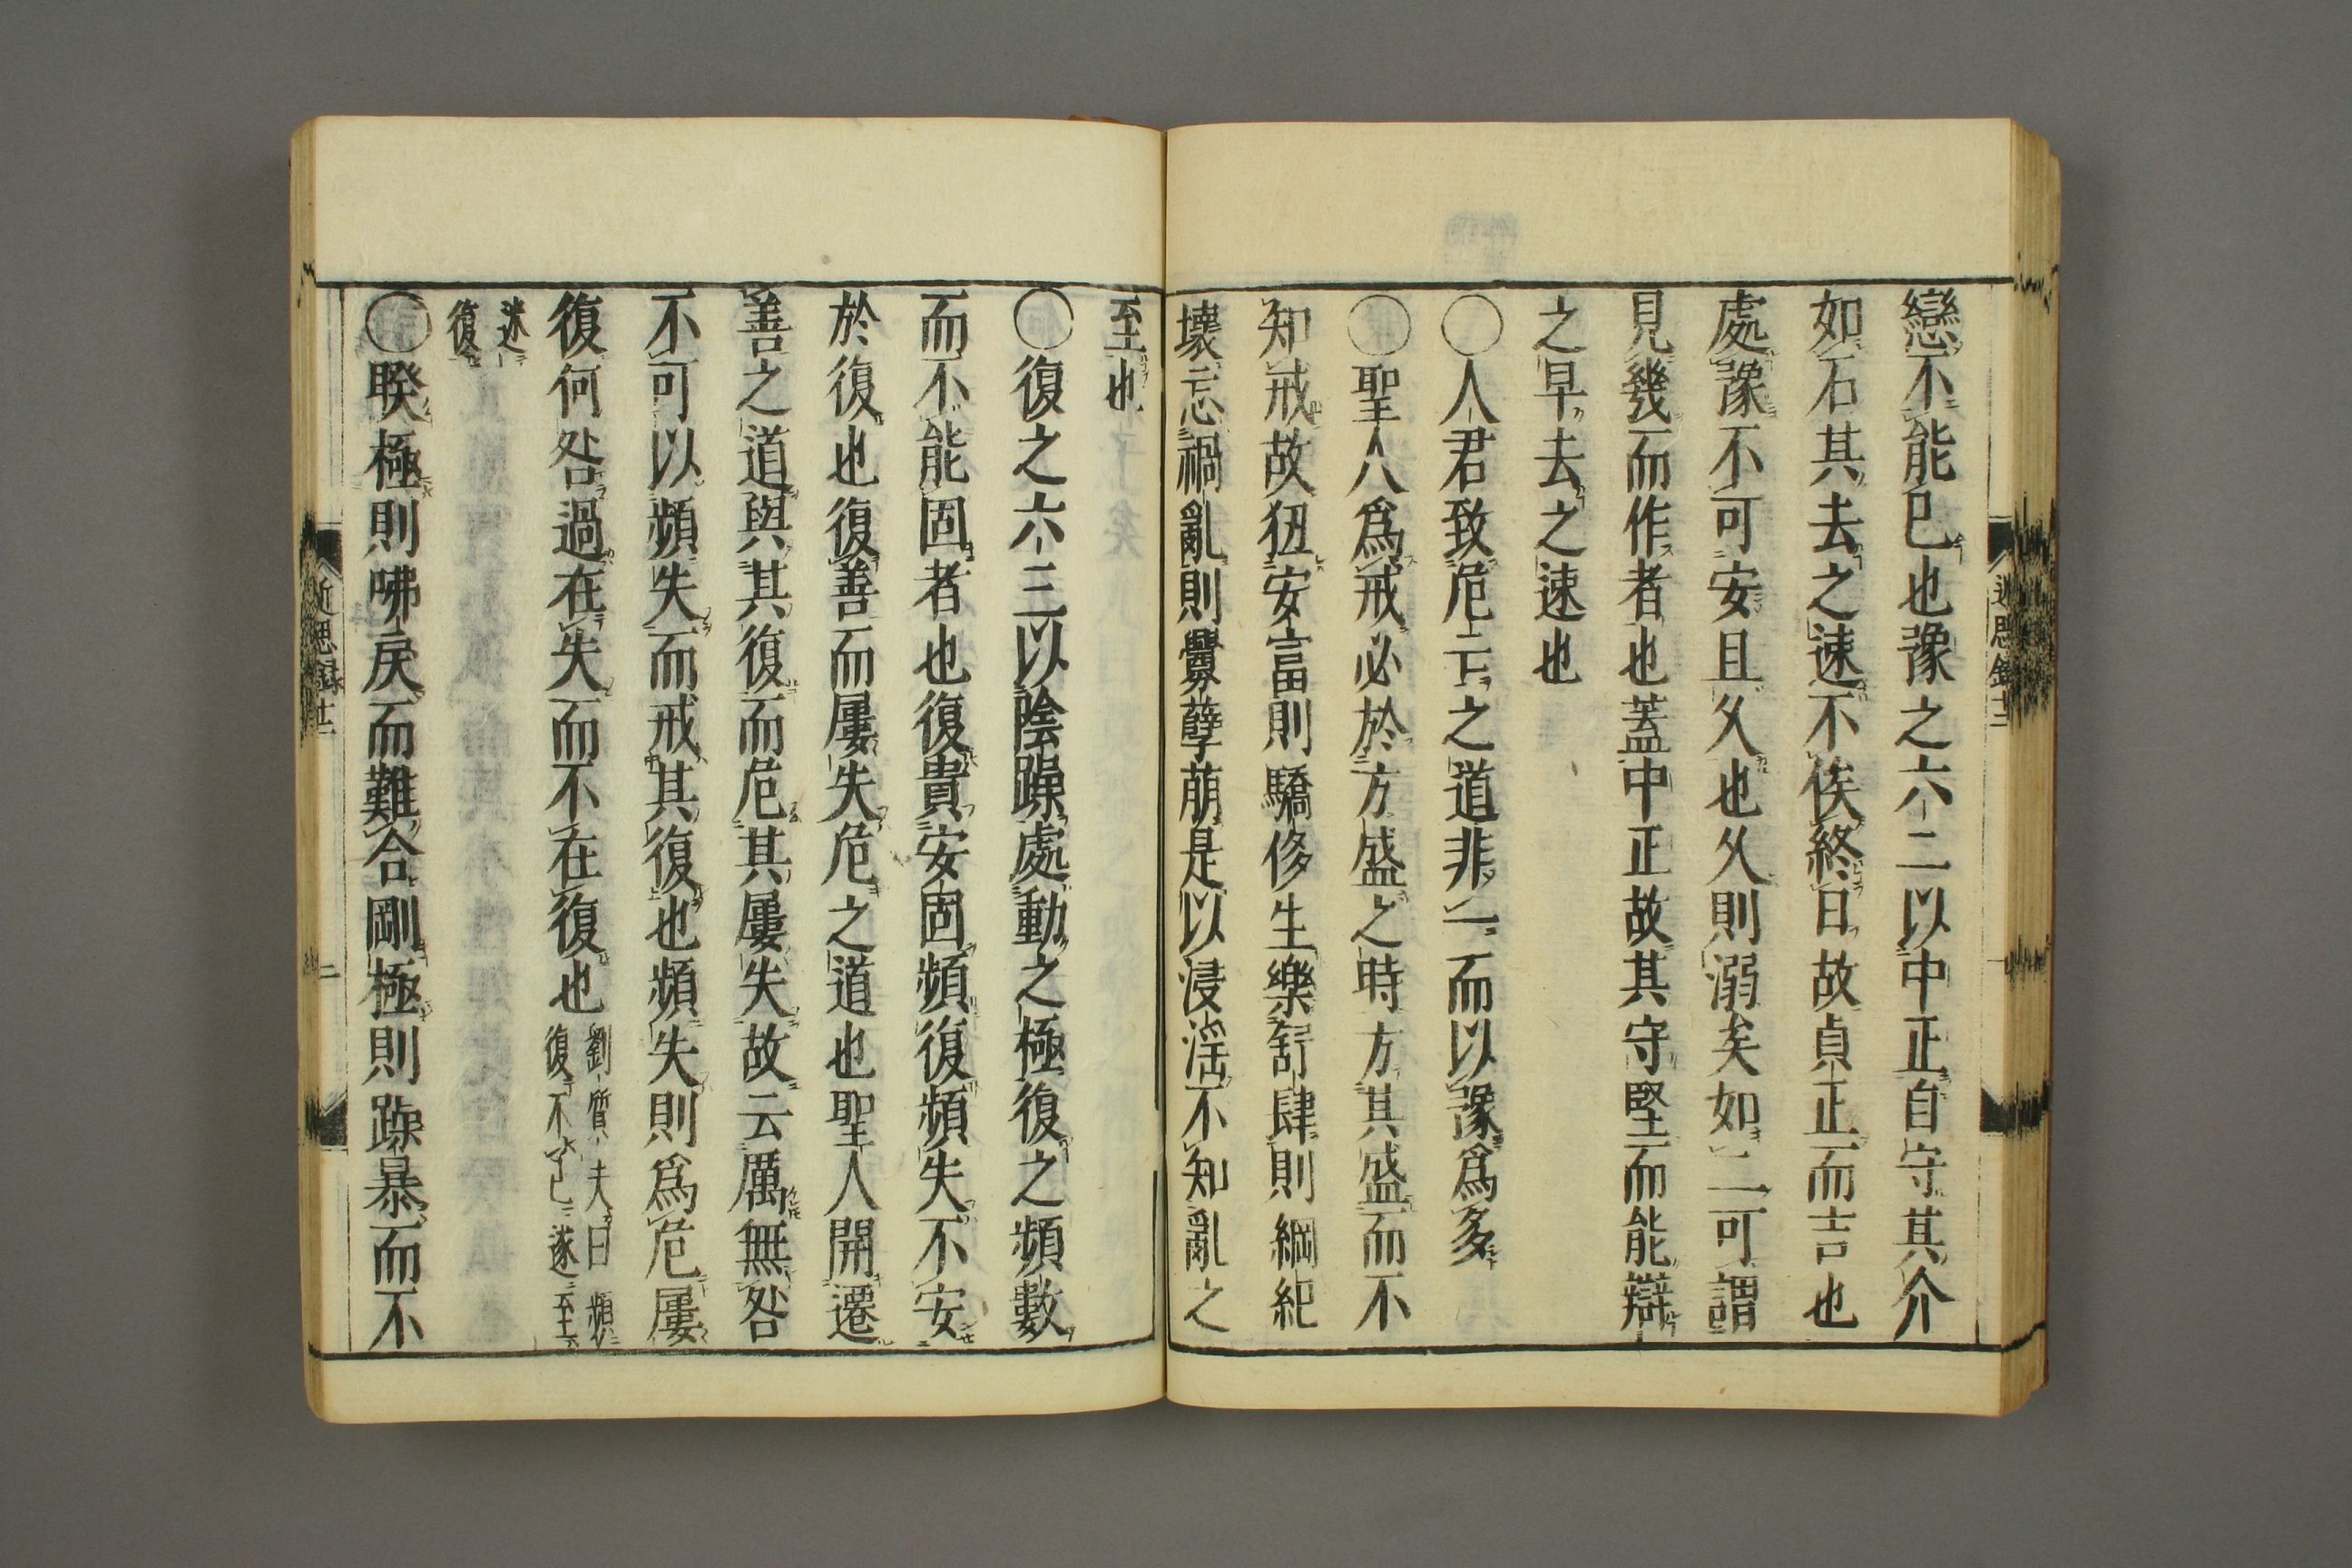 戀不能已也豫之六二以中正自守其介
如石其去之速不俟終日故貞正而吉也
處豫不可安且久也久則溺矣如二可謂
見幾而作者也蓋中正故其守堅而能辯
之早去之速也
〇人君致危亡之道非一而以豫爲多
〇聖人爲戒必於方盛之時方其盛而不
知戒故狃安富則驕侈生樂舒肆則綱紀
壞忘禍亂則釁孽萠是以浸淫不知亂之
至也
〇復之六三以陰躁處動之極復之頻數
而不能固者也復貴安固頻復頻失不安
於復也復善而屢失危之道也聖人開遷
善之道與其復而危其屢失故云厲無咎
不可以頻失而戒其復也頻失則爲危屢
復何咎過在失而不在復也劉質夫曰頻
復不已遂至
迷
復
〇睽極則咈戾而難合剛極則躁暴而不
近思録十二
二
近思録十二